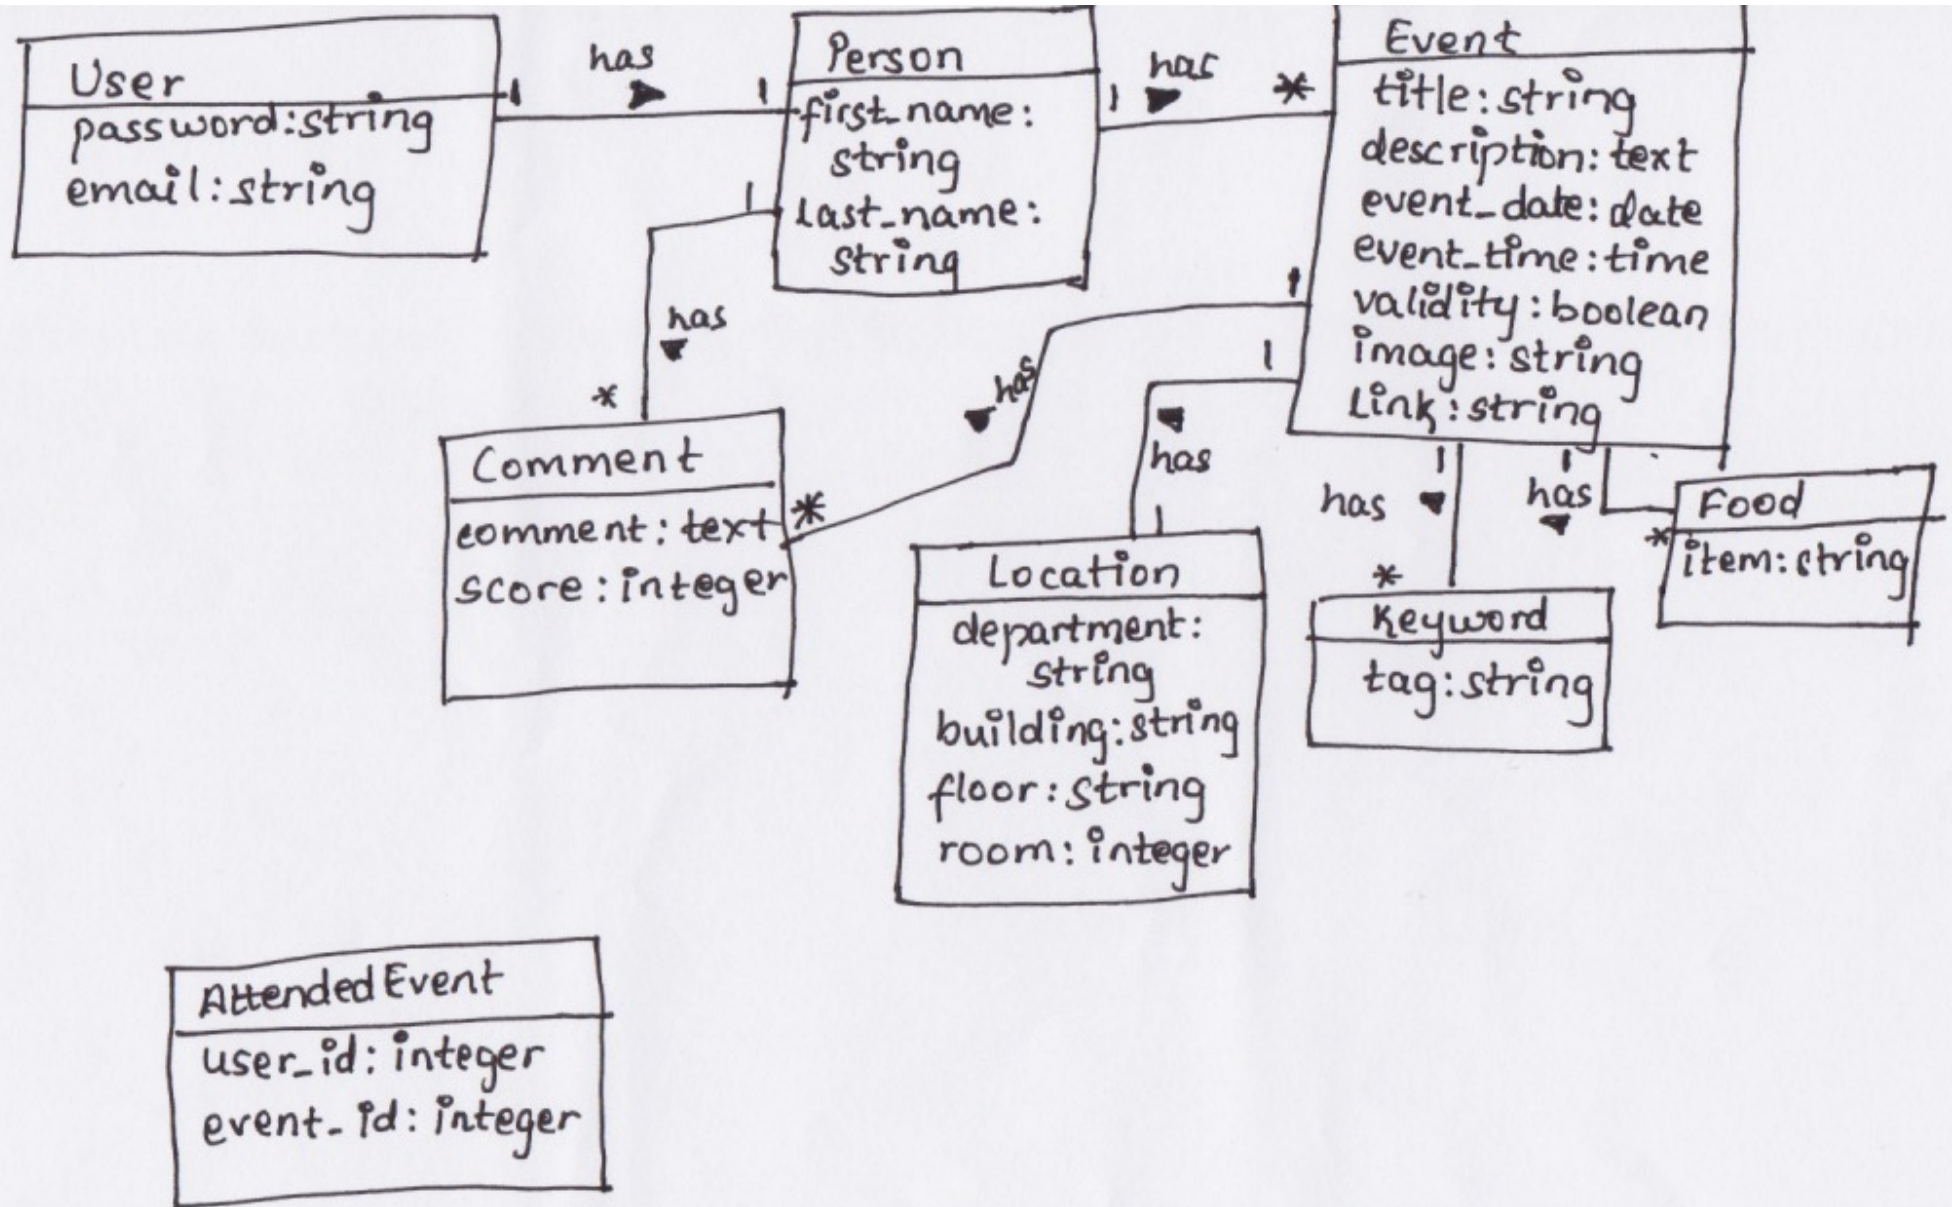 User
password:string
email:string
has
1
1
Person
first_name:
string
last_name:
string
has
1
*
Event
title:string
description:text
event_date:date
event_time:time
validity:boolean
image:string
Link:string
1
has
*
Comment
comment:text
score:integer
1
has
*
1
has
1
Location
department:
string
building:string
floor:string
room:integer
1
has
*
Keyword
tag:string
1
has
*
Food
item:string
AttendedEvent
user_id:integer
event_id:integer